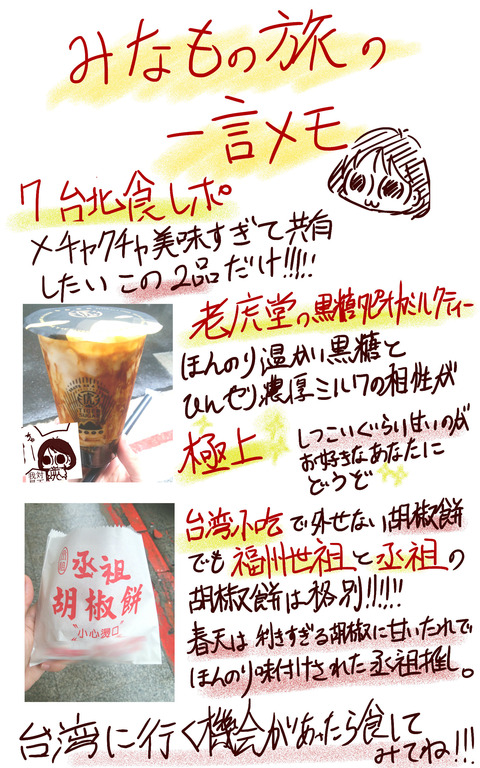 みなもの旅の
一言メモ
7 台北食レポ
メチャクチャ美味すぎて共有
したいこの2品だけ!!!!!
老虎堂の黒糖タピオカミルクティー
ほんのり温かい黒糖と
ひんやり濃厚ミルクの相性が
極上
しつこいぐらい甘いのが
お好きなあなたに
どうぞ
台湾小吃で外せない胡椒餅
でも福州世祖と丞祖の
胡椒餅は格別!!!!!
春天は利きすぎる胡椒に甘いたれで
ほんのり味付けされた丞祖推し。
丞祖
胡椒餅
"小心燙口"
台湾に行く機会があったら食して
みてね!!!